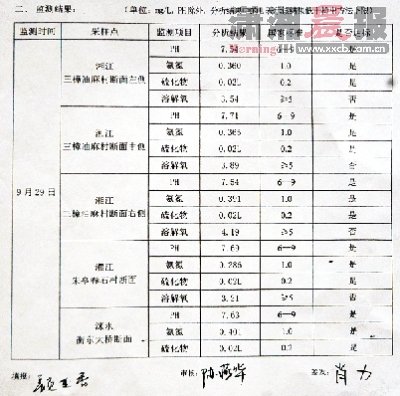 二、监测结果：（单位：mg/L，PH除外，分析结果
潇湘晨报
www.xxcb.com.cn
监测时间 采样点 监测项目 分析结果 国家标准 是否达标
9月29日
湘江
三樟油麻村断面左侧
PH 7.54 6—9 是
氨氮 0.360 1.0 是
硫化物 0.02L 0.2 是
溶解氧 3.54 ≥5 否
湘江
三樟油麻村断面中侧
PH 7.71 6—9 是
氨氮 0.365 1.0 是
硫化物 0.02L 0.2 是
溶解氧 3.89 ≥5 否
湘江
三樟油麻村断面右侧
PH 7.54 6—9 是
氨氮 0.391 1.0 是
硫化物 0.02L 0.2 是
溶解氧 4.19 ≥5 否
湘江
PH 7.69 6—9 是
氨氮 0.286 1.0 是
硫化物 0.02L 0.2 是
溶解氧 3.21 ≥5 否
涞水
衡东大桥断面
PH 7.63 6—9 是
氨氮 0.401 1.0 是
硫化物 0.02L 0.2 是
填报： 审核： 签发：肖力